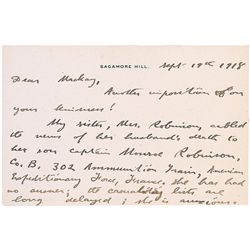 SAGAMORE HILL.
Sept 19th 1918
Dear Mackay,
Another imposition on
your kindness!
My sister, Mrs. Robinson, cabled
the news of her husband's death to
her son Captain Monroe Robinson,
Co. B, 302 Ammunition Train, American
Expeditionary Force, France. She has had
no answer; the casualty lists are
long delayed; she is anxious.